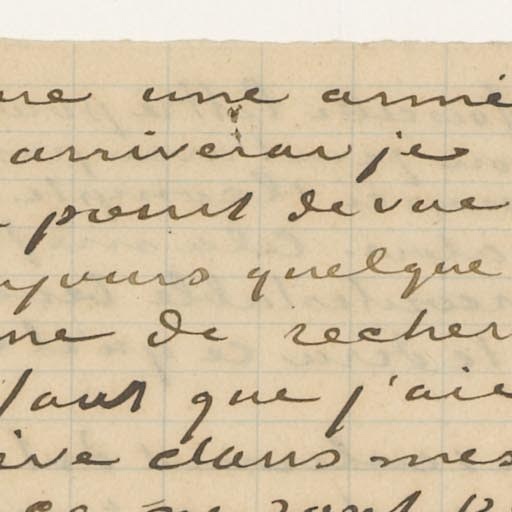 une armé
arriverai je
point de vue
ujours quelque
me de recher
faut que j'aie
ive dans mes